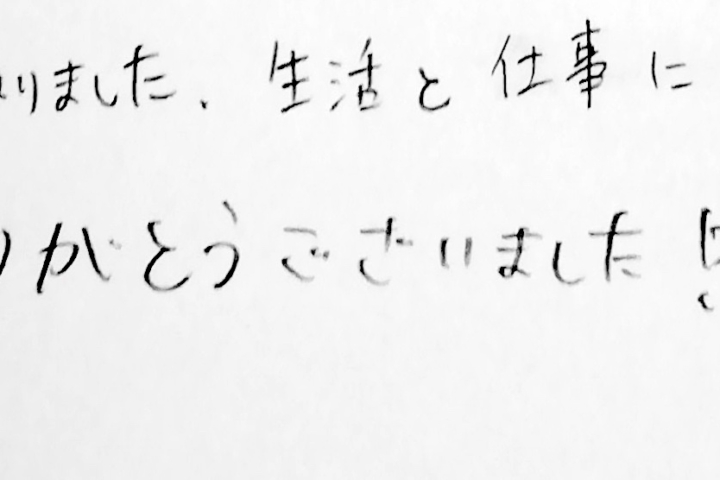 りました、生活と仕事に
りがとうございました!